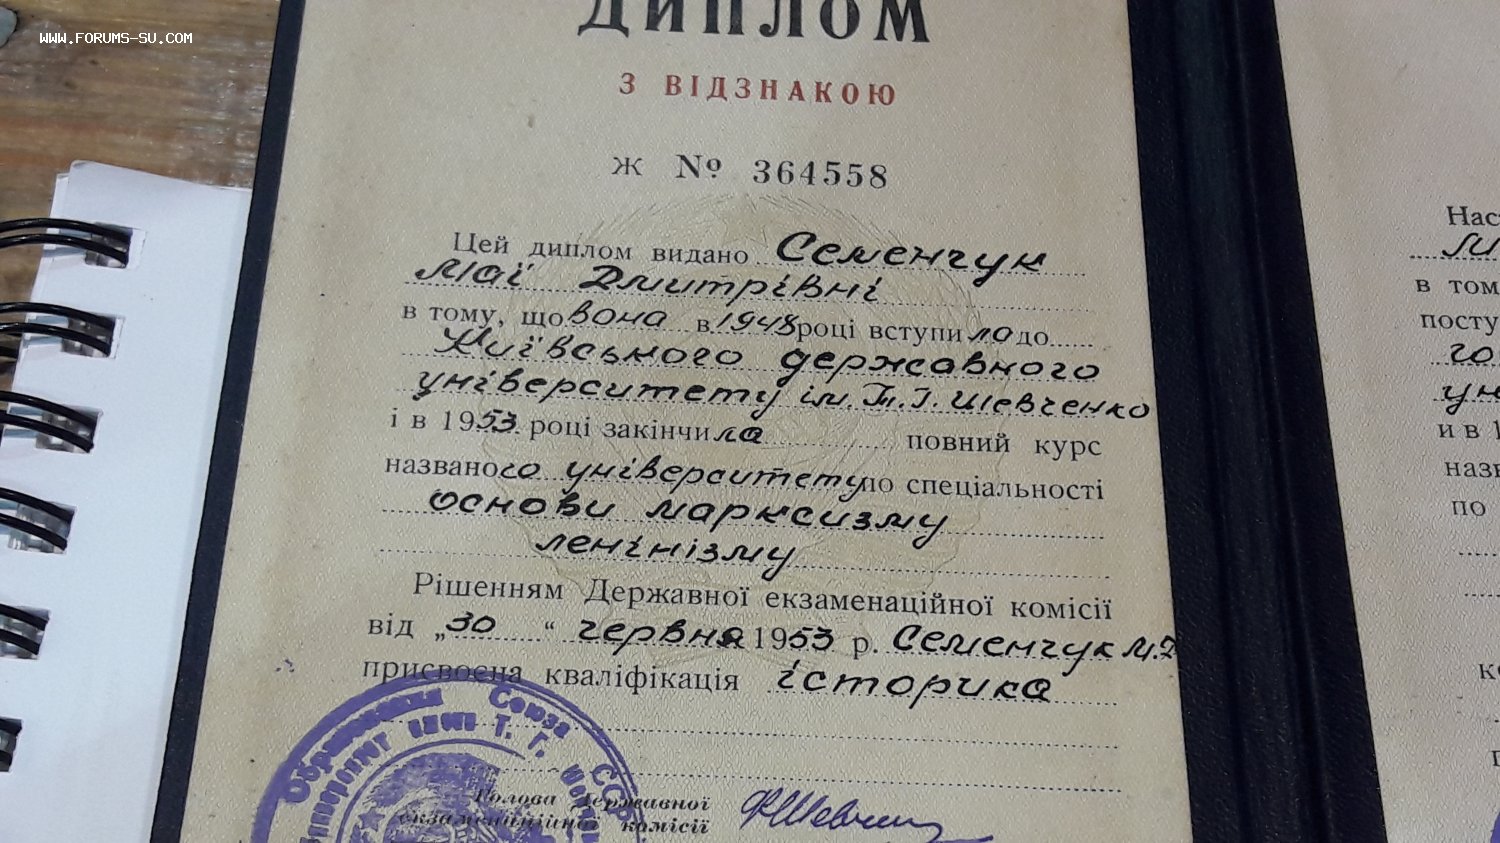 WWW.FORUMS-SU.COM
ДИПЛОМ
З ВІДЗНАКОЮ
Ж № 364558
Цей диплом видано Семенчук
Маї Дмитрівні
в тому, що вона в 1948 році вступила до
Київського державного
університету ім. Т.Г. Шевченко
і в 1953 році закінчила повний курс
названого університету по спеціальності
основи марксизму
ленінізму
Рішенням Державної екзаменаційної комісії
від „30“ червня 1953 р. Семенчук М.Д
присвоєна кваліфікація історика
Союза ССР
Т. Г.
Голова Державної
екзаменаційної комісії
в том
посту
го
ун
и в 1
назв
по